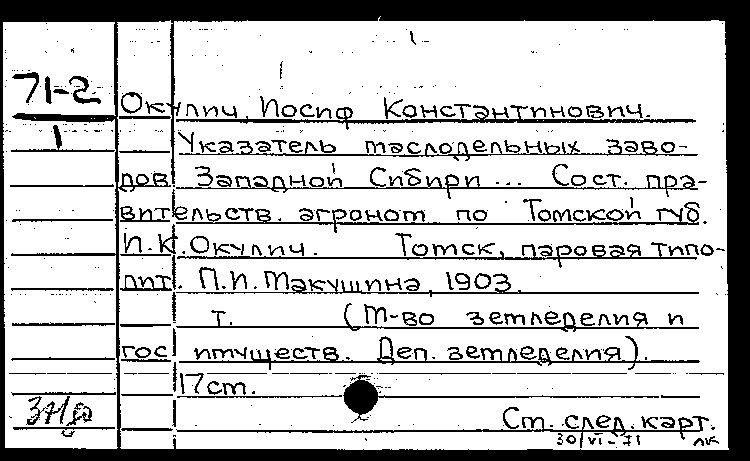 71-2
1
Окулич, Иосиф Константинович.
Указатель маслодельных заво-
дов Западной Сибири ... Сост. пра-
вительств. агроном. по Томской губ.
И.К. Окулич. Томск, паровая типо-
лит. П.И. Макушина, 1903.
т. (М-во земледелия и
гос имуществ. Деп. земледелия).
17см.
См. след. карт.
30/VI-71 лк